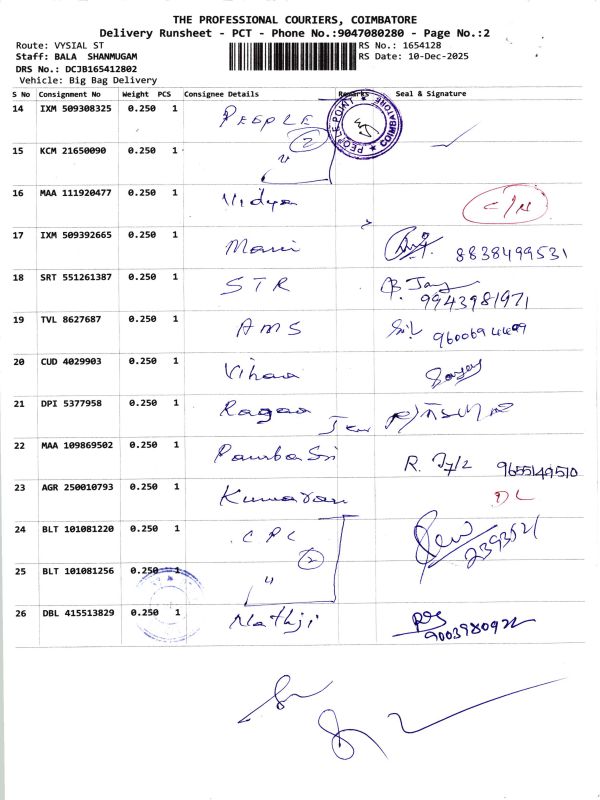 THE PROFESSIONAL COURIERS, COIMBATORE
Delivery Runsheet - PCT - Phone No.:9047080280 - Page No.:2
Route: VYSIAL ST RS No.: 1654128
Staff: BALA SHANMUGAM RS Date: 10-Dec-2025
DRS No.: DCJB165412802
Vehicle: Big Bag Delivery
S No Consignment No Weight PCS Consignee Details Remarks Seal & Signature
14 IXM 509308325 0.250 1 PEOPLE PEOPLE POINT ★ COIMBATORE ★
2
15 KCM 21650090 0.250 1 "
16 MAA 111920477 0.250 1 Vidya
17 IXM 509392665 0.250 1 Mani 8838499531
18 SRT 551261387 0.250 1 STR B. Jay
9943981971
19 TVL 8627687 0.250 1 AMS 9600694499
20 CUD 4029903 0.250 1 Vihaa
21 DPI 5377958 0.250 1 Ragaa
22 MAA 109869502 0.250 1 R. 9655149510
23 AGR 250010793 0.250 1 Kumaran DL
24 BLT 101081220 0.250 1 CPC
2 2393521
25 BLT 101081256 0.250 1 "
26 DBL 415513829 0.250 1 Nathji
9003980922